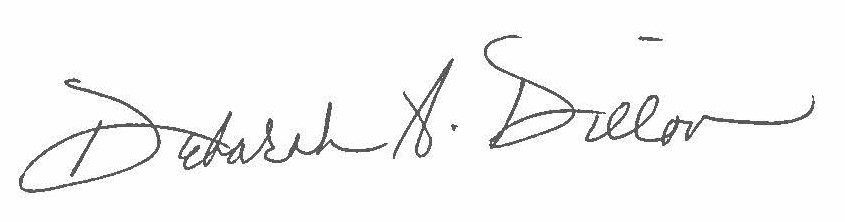 Deborah A. Dillon